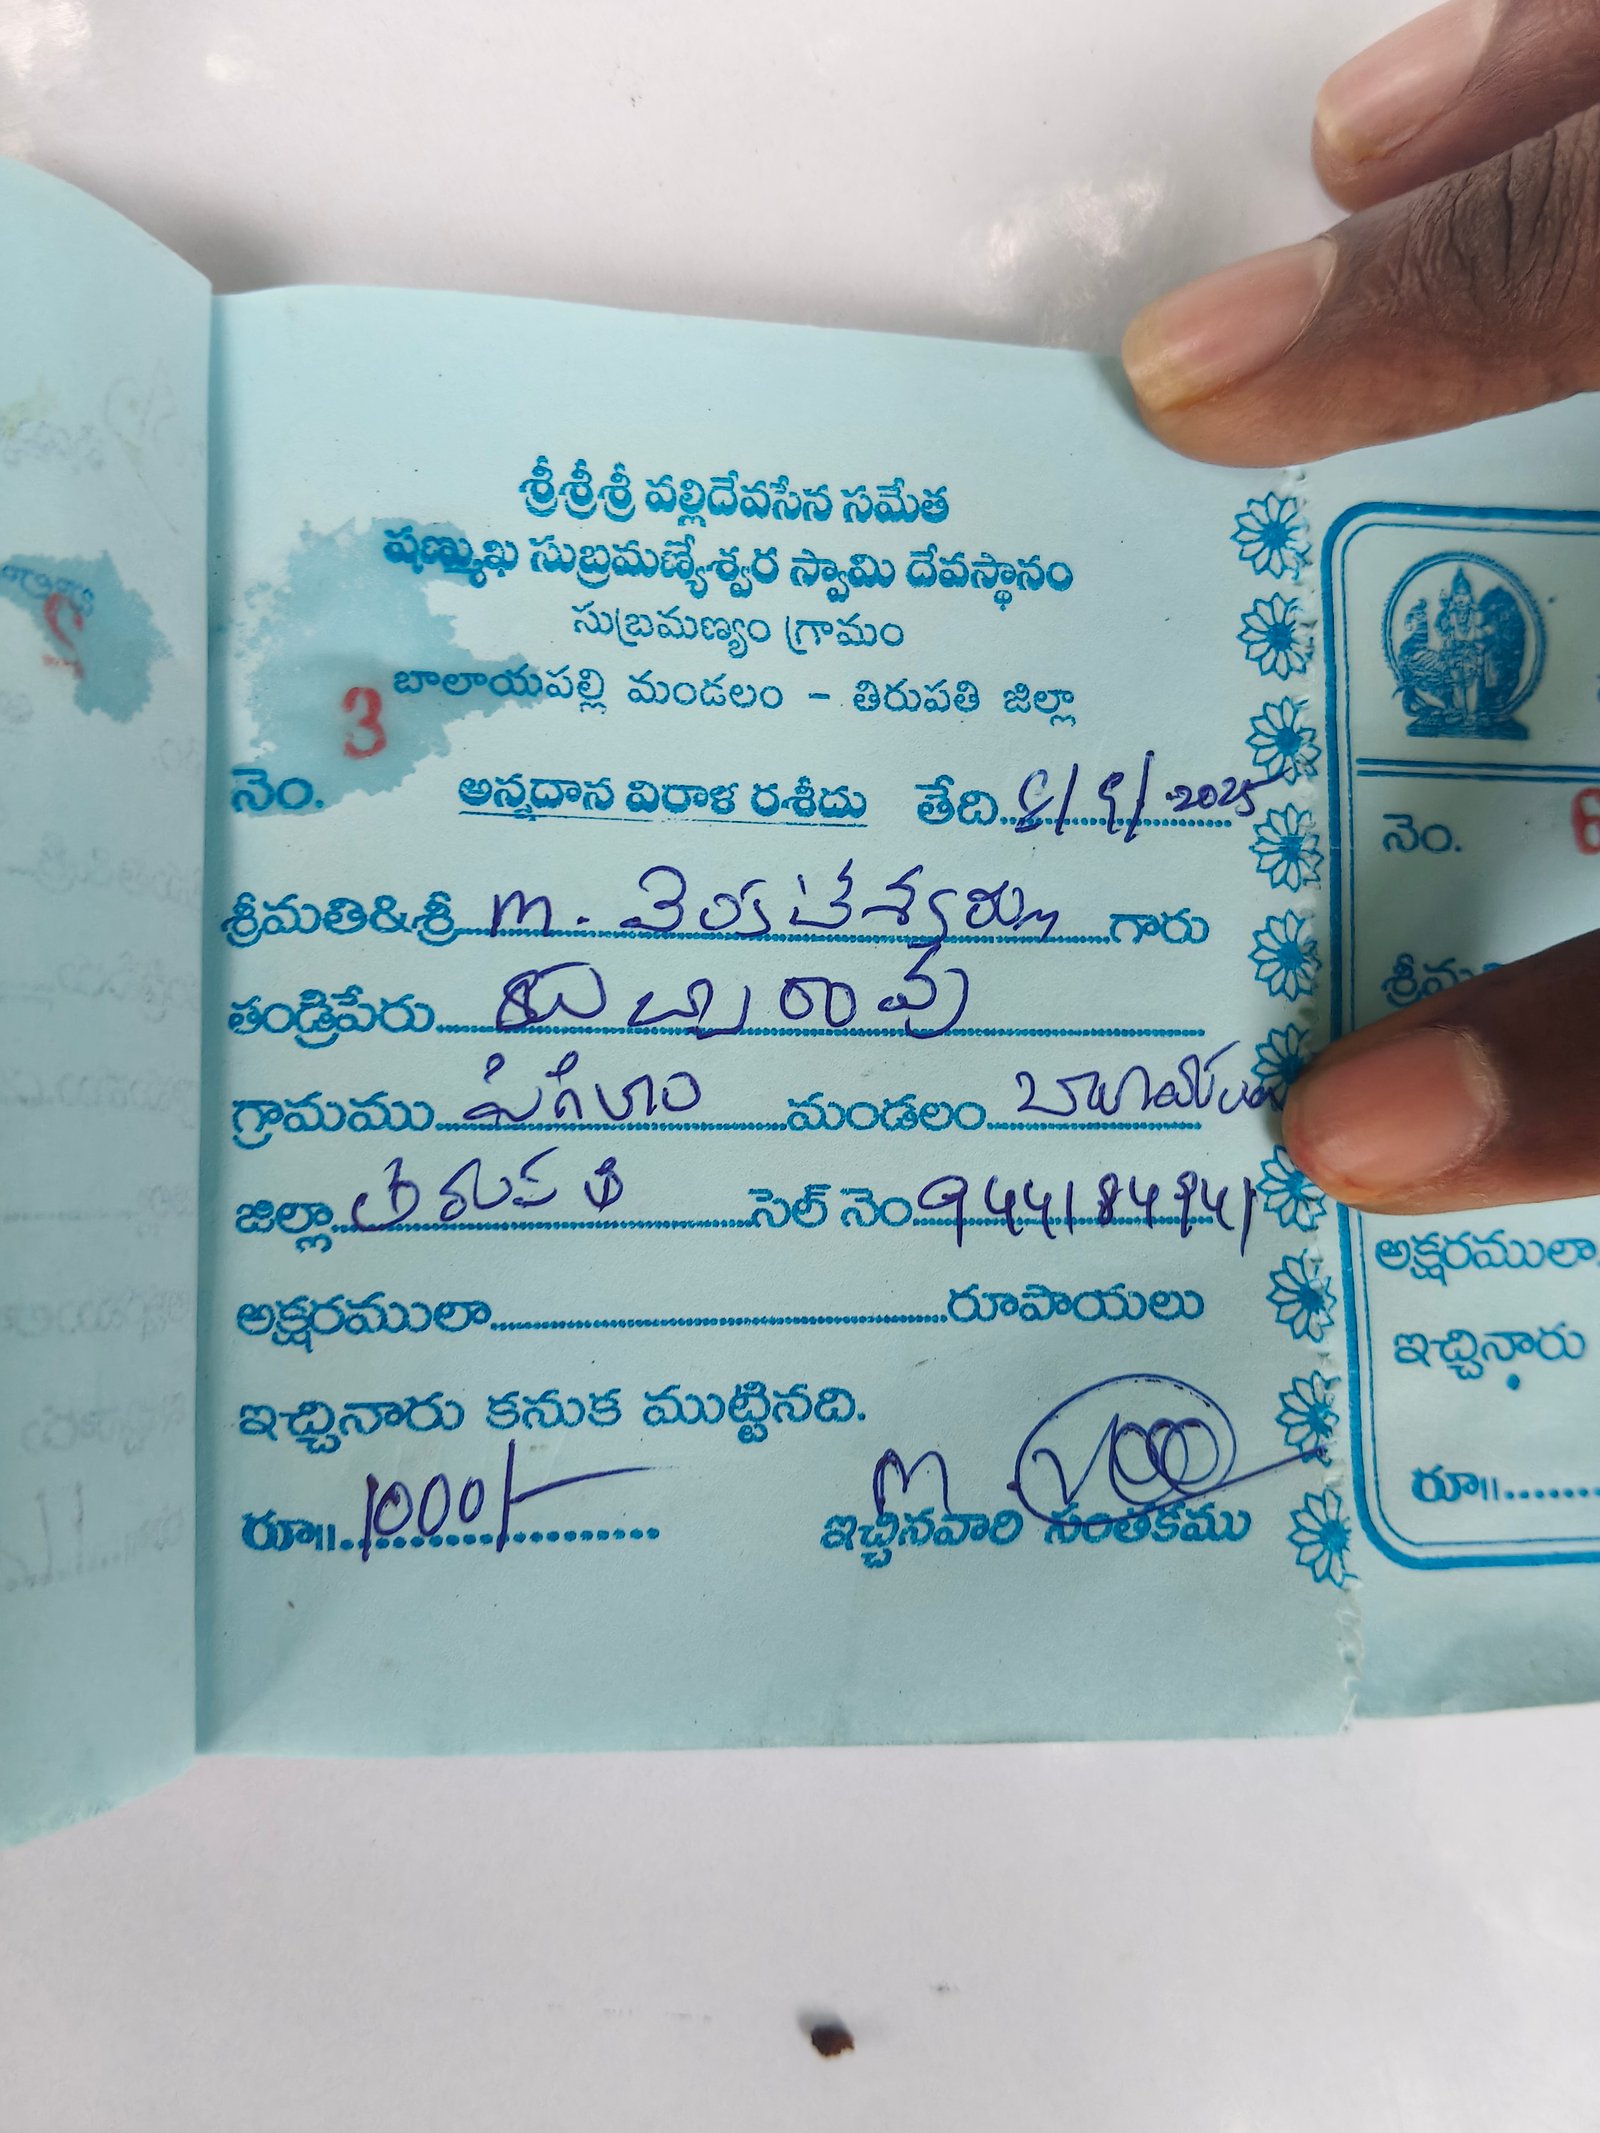 శ్రీశ్రీశ్రీ వల్లిదేవసేన సమేత
షణ్ముఖ సుబ్రమణ్యేశ్వర స్వామి దేవస్థానం
సుబ్రమణ్యం గ్రామం
బాలాయపల్లి మండలం - తిరుపతి జిల్లా
నెం. 3 అన్నదాన విరాళ రశీదు తేది 2025
శ్రీమతి&శ్రీ m. వెంకటేశ్వర్లు గారు
తండ్రిపేరు సుబ్బారావు
గ్రామము మండలం
జిల్లా తిరుపతి సెల్ నెం 9441849441
అక్షరములా రూపాయలు
ఇచ్చినారు కనుక ముట్టినది.
రూ॥ 1000/- m
ఇచ్చినవారి సంతకము
నెం. 6
అక్షరములా
ఇచ్చినారు
రూ॥